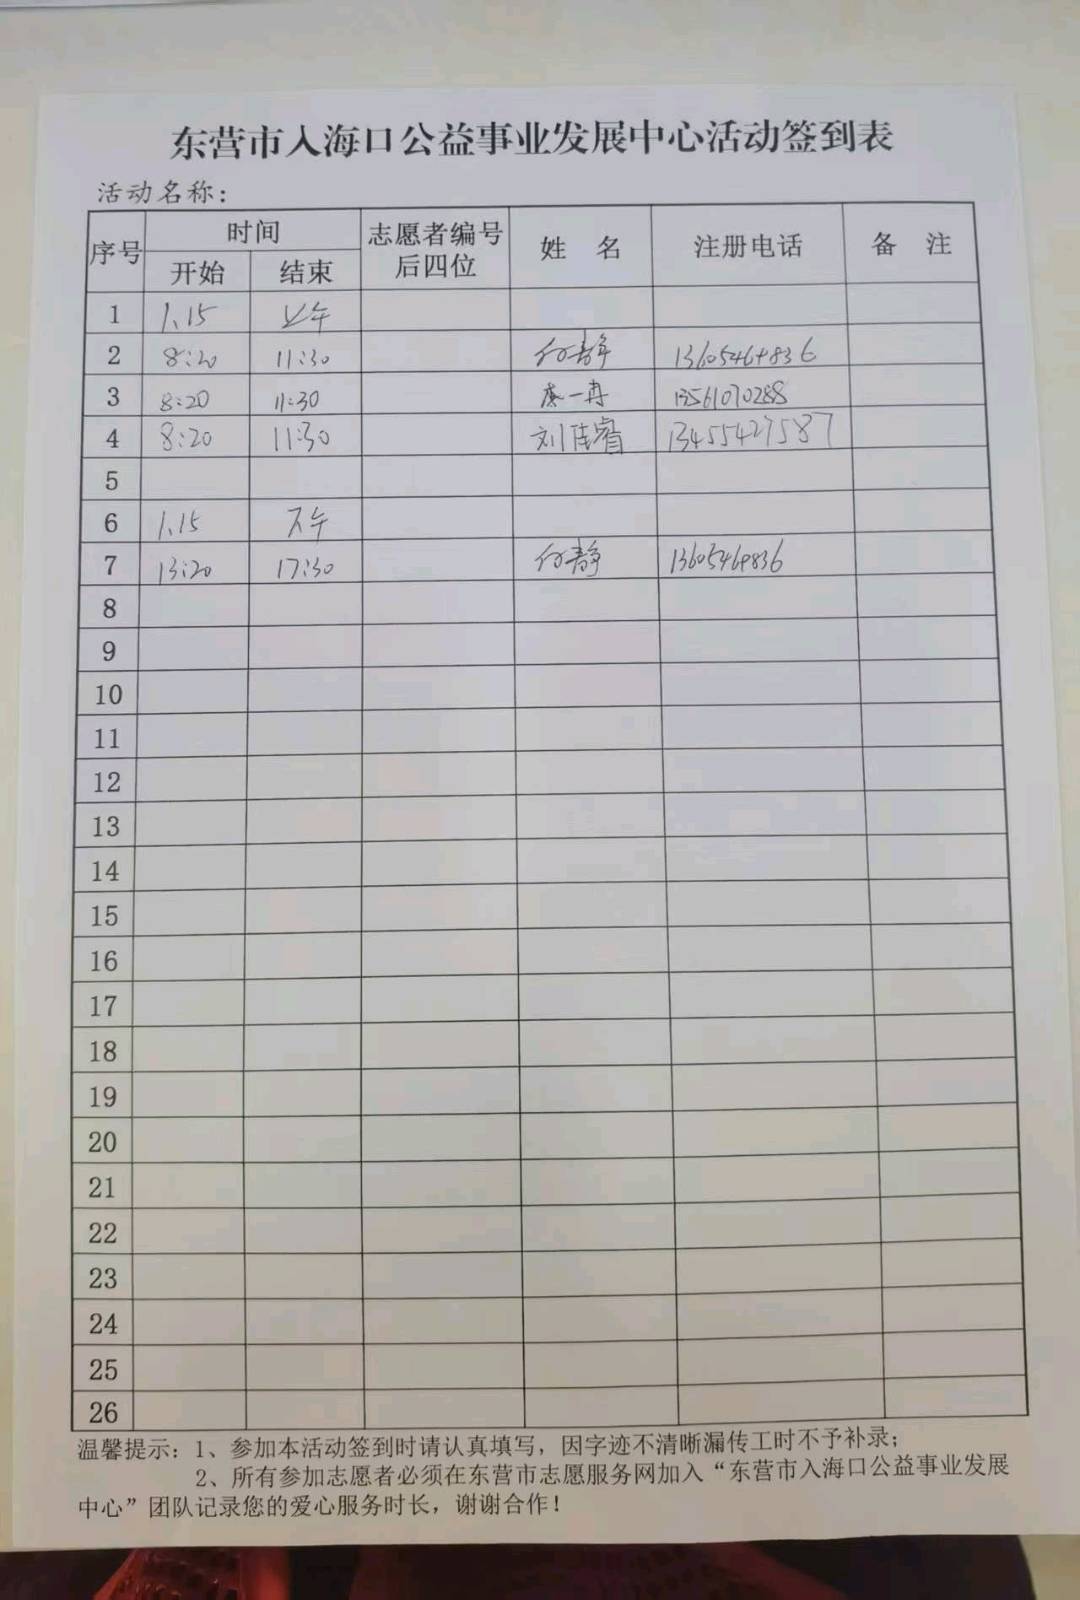 东营市入海口公益事业发展中心活动签到表
活动名称：
序号 时间 志愿者编号后四位 姓 名 注册电话 备 注
开始 结束
1 1.15 上午
2 8:20 11:30 何静 13605464836
3 8:20 11:30 一冉 13561070288
4 8:20 11:30 刘佳睿 13455427587
5
6 1.15 下午
7 13:20 17:30 何静 13605464836
8
9
10
11
12
13
14
15
16
17
18
19
20
21
22
23
24
25
26
温馨提示：1、参加本活动签到时请认真填写，因字迹不清晰漏传工时不予补录；
2、所有参加志愿者必须在东营市志愿服务网加入“东营市入海口公益事业发展
中心”团队记录您的爱心服务时长，谢谢合作！